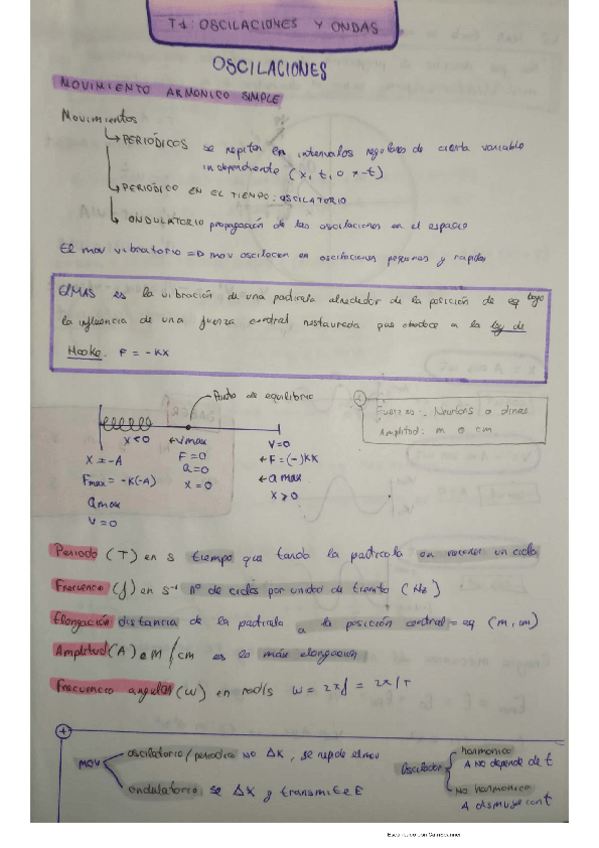 T1: OSCILACIONES Y ONDAS
OSCILACIONES
MOVIMIENTO ARMONICO SIMPLE
Movimientos
PERIÓDICOS se repiten en intervalos regulares de cierta variable
independiente (x, t, o x-t)
PERIÓDICO EN EL TIEMPO: OSCILATORIO
ONDULATORIO propagación de las oscilaciones en el espacio
El mov vibratorio => mov oscilacion en oscilaciones pequeñas y rapidas
El MAS es la vibración de una particula alrededor de la posición de eq bajo
la influencia de una fuerza central restauradora que obedece a la ley de
Hooke. F = -KX
Punto de equilibrio
Fuerzas: Newtons o dinas
Amplitud: m o cm
x<0 ←vmax v=0
x=-A F=0 ←F=(-)KX
Fmax = -K(-A) a=0 ←a max
amax x=0 x>0
v=0
Periodo (T) en s tiempo que tarda la particula en recorrer un ciclo
Frecuencia (f) en s⁻¹ nº de ciclos por unidad de tiempo (Hz)
Elongación distancia de la particula a la posición central = eq (m, cm)
Amplitud (A) e M/cm es la máx elongación
Frecuencia angular (w) en rad/s w = 2πf = 2π/T
mov
oscilatorio/periodico no ΔX, se repite el mov
ondulatorio se ΔX y transmite E
Oscilador
harmonico
A No depende de t
No harmonico
A disminuye con t
Escaneado con CamScanner